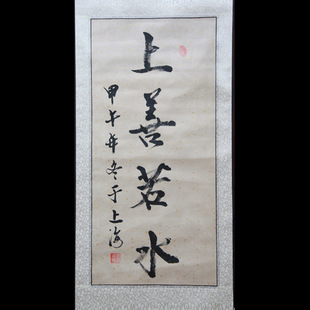 上善若水
甲午年冬于上海